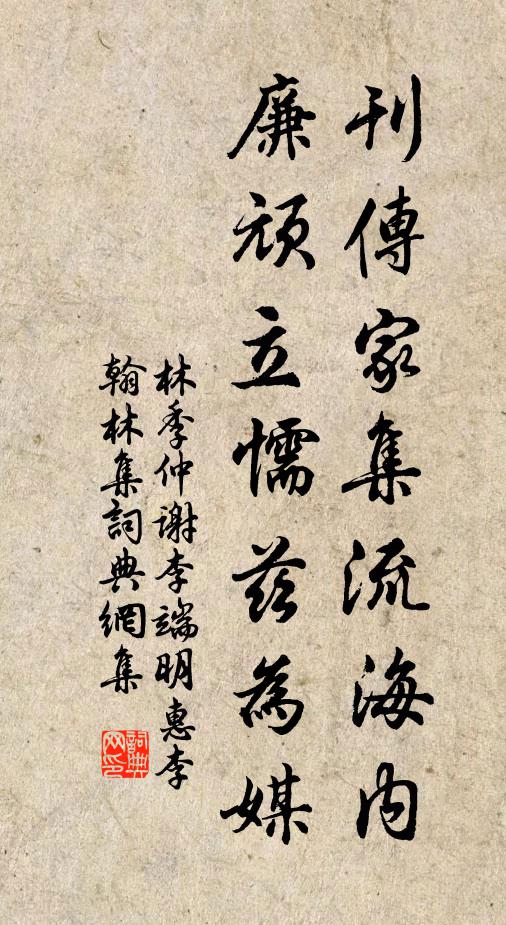 刊傳家集流海內
廉頑立懦茲為媒
林季仲謝李端明惠李
翰林集詞典網集
詞典
网印